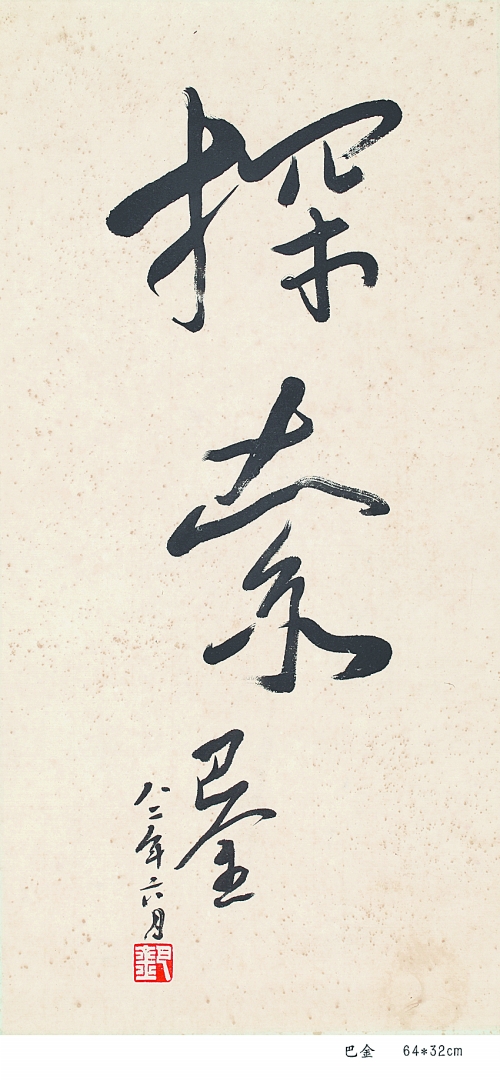 探索
巴金
八二年六月
巴金
巴金 64*32cm